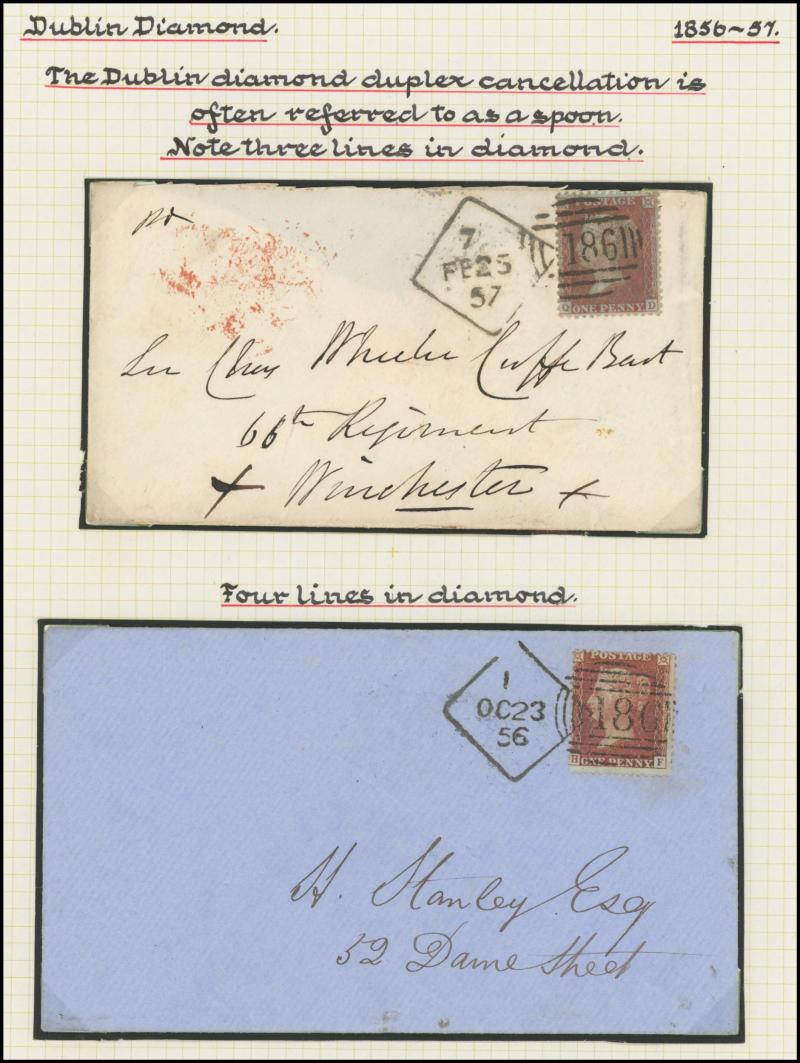 Dublin Diamond. 1856~57.
The Dublin diamond duplex cancellation is
often referred to as a spoon.
Note three lines in diamond.
7
FE25
57
POSTAGE
186
Q ONE PENNY D
Sir Chas Wheeler Cuffe Bart
66th Regiment
Winchester
Four lines in diamond.
1
OC23
56
POSTAGE
186
H ONE PENNY F
H. Stanley Esq
52 Dame Street